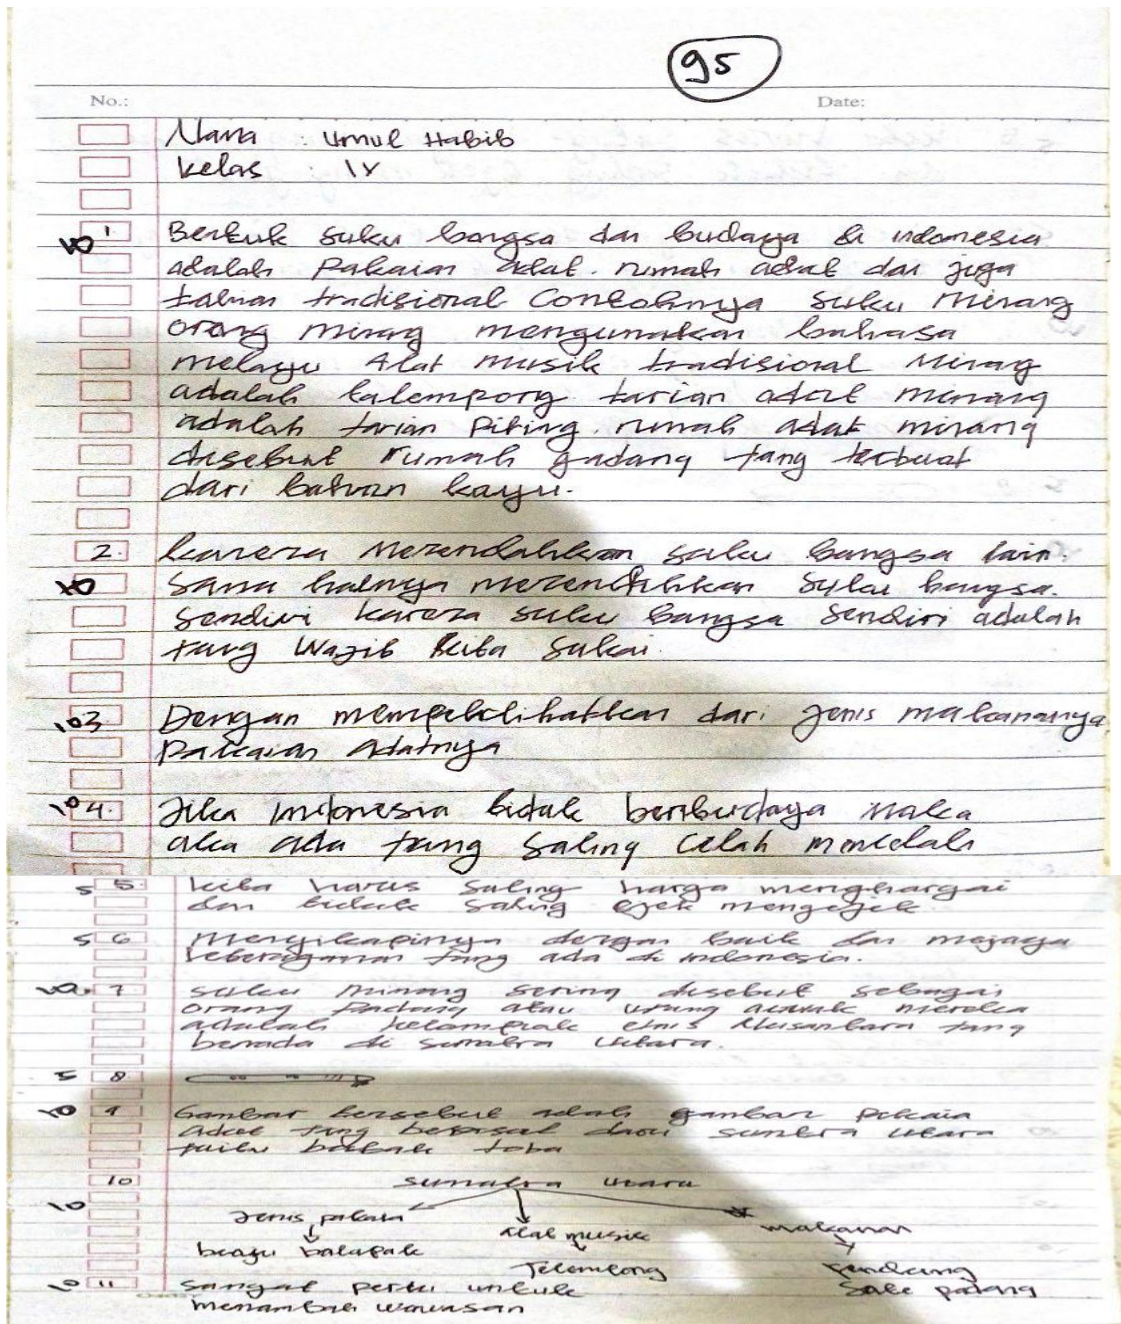 95
No.:
Date:
Nama : Umul Habib
kelas : IV
10 1 Bentuk suku bangsa dan budaya di indonesia
adalah Pakaian adat. rumah adat dan juga
tarian tradisional Contohnya suku Minang
orang minang mengunakan bahasa
melayu Alat musik tradisional Minang
adalah talempong tarian adat minang
adalah tarian Piring. rumah adat minang
disebut rumah gadang yang terbuat
dari bahan kayu.
2. karena Merendahkan suku bangsa lain.
10 Sama halnya merendahkan suku bangsa.
Sendiri karena suku bangsa Sendiri adalah
yang Wajib kita Sukai.
10 3 Dengan dari Jenis makananya
Pakaian adatnya
10 4. Jika indonesia tidak berbudaya Maka
aka ada yang saling Celah mencelah
5 5. kita harus saling harga menghargai
dan tidak saling ejek mengejek.
5 6 Menyikapinya dengan baik dan
keberagaman yang ada di indonesia.
10 7 suku minang sering disebut sebagai
orang Padang atau urang awak mereka
adalah kelompok etnis Nusantara yang
berada di sumatra Utara.
5 8
10 9 Gambar tersebut adalah gambar Pakaia
adat yang berasal dari sumatra utara
yaitu batak toba
10 sumatra utara
10 Jenis pakaia Alat musik makanan
Telempong rendang
Sate padang
10 11 sangat perlu untuk
menambah wawasan